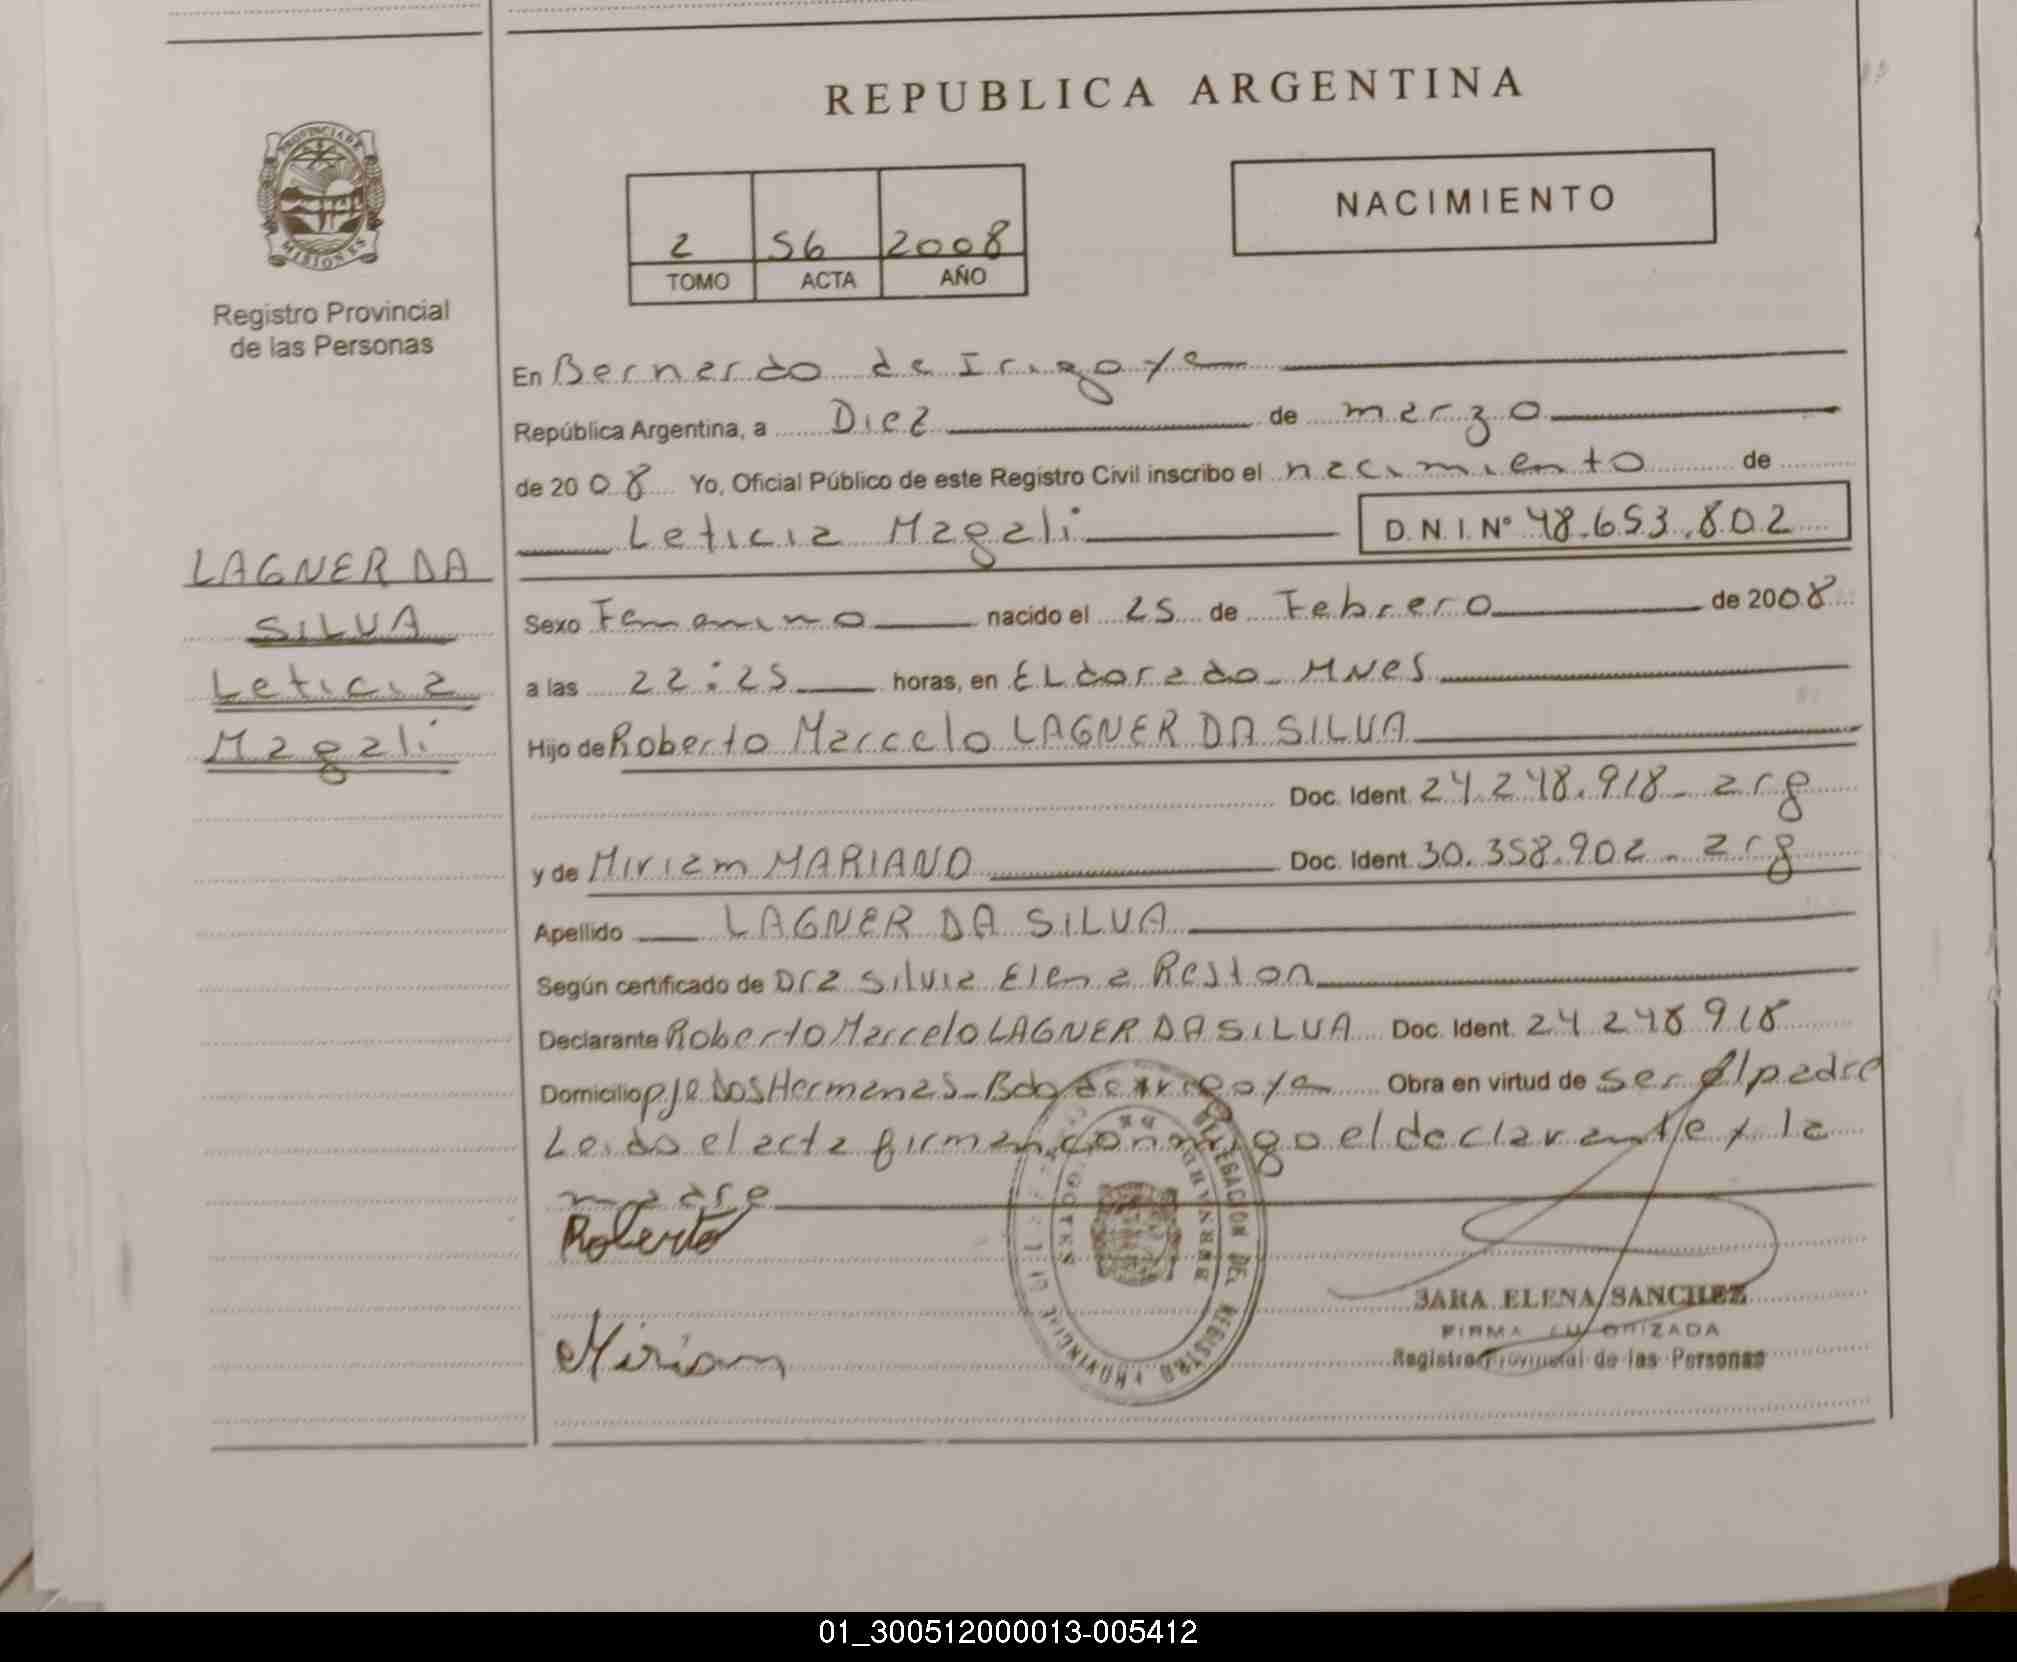 REPUBLICA ARGENTINA
PROVINCIA DE
MISIONES
Registro Provincial
de las Personas
2 56 2008
TOMO ACTA AÑO
NACIMIENTO
En Bernardo de Irigoyen
República Argentina, a Diez de marzo
de 2008 Yo, Oficial Público de este Registro Civil inscribo el nacimiento de
Leticia Magali D.N.I. Nº 48.653.802
LAGNER DA
SILVA
Leticia
Magali
Sexo Femenino nacido el 25 de Febrero de 2008
a las 22:25 horas, en ELdorado - MNes
Hijo de Roberto Marcelo LAGNER DA SILVA
Doc. Ident. 24.248.918 - arg
y de Miriam MARIANO Doc. Ident. 30.358.902 - arg
Apellido LAGNER DA SILVA
Según certificado de Dra Silvia Elena Reston
Declarante Roberto Marcelo LAGNER DA SILVA Doc. Ident. 24 248 918
Domicilio pje Dos Hermanas - Bdo de Irigoyen Obra en virtud de ser el padre
Leido el acta firman conmigo el declarante y la
madre
Roberto
Miriam
DELEGACION DEL REGISTRO PROVINCIAL
BERNARDO DE
SARA ELENA SANCHEZ
FIRMA AUTORIZADA
Registro Provincial de las Personas
01_300512000013-005412